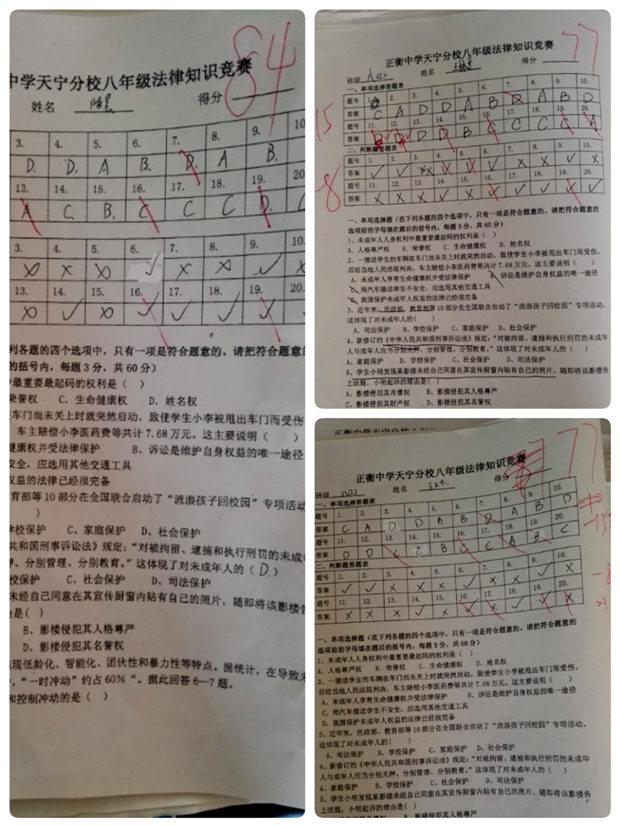 中学天宁分校八年级法律知识竞赛
84
姓名
得分
3. 4. 5. 6. 7. 8. 9. 10
D. D. A B. D. A B.
13. 14. 15. 16. 17. 18. 19. 20
A C. B. C C C D.
3. 4. 5. 6. 7. 8. 9. 10
× × × ✓ × × ✓ ×
13. 14. 15. 16. 17. 18. 19. 20.
× ✓ × ✓ ✓ ✓ ✓ ✓
列各题的四个选项中，只有一项是符合题意的，请把符合题意
的括号内，每题 3 分，共 60 分）
最重要最起码的权利是（ ）
荣誉权 C. 生命健康权 D. 姓名权
车门尚未关上时就突然启动，致使学生小李被甩出车门而受伤
车主赔偿小李医药费等共计 7.68 万元。这主要说明（
健康权并受法律保护 B、诉讼是维护自身权益的唯一途径
安全，应选用其他交通工具
权益的法律已经很完备
育部等 10 部分在全国联合启动了“流浪孩子回校园”专项活动
）
学校保护 C、家庭保护 D、社会保护
共和国刑事诉讼法》规定：“对被拘留、逮捕和执行刑罚的未成
押、分别管理、分别教育。”这体现了对未成年人的（ D. ）
校保护 C、社会保护 D、司法保护
未经自己同意在其宣传厨窗内贴有自己的照片，随即将该影楼告
由是（ ）
B、影楼侵犯其人格尊严
D、影楼侵犯其名誉权
现低龄化、智能化、团伙性和暴力性等特点。据统计，在导致未
，“一时冲动”约占 60%“。据此回答 6—7 题。
和控制冲动的是（ ）
正衡中学天宁分校八年级法律知识竞赛
77
班级
姓名
得分
一、单项选择答题表
题号 1. 2. 3. 4. 5. 6. 7. 8. 9. 10.
答案 C A D D A B D A B D
题号 11. 12. 13. 14. 15. 16. 17. 18. 19. 20.
答案 B D D D B C C C C A
15
二、判断题答题表
题号 1. 2. 3. 4. 5. 6. 7. 8. 9. 10.
答案
题号 11. 12. 13. 14. 15. 16. 17. 18. 19. 20.
答案
8
一、单项选择题（在下列各题的四个选项中，只有一项是符合题意的，请把符合题意的
选项前的字母填在题后的括号内，每题 3 分，共 60 分）
1、未成年人人身权利中最重要最起码的权利是（ ）
A. 人格尊严权 B. 荣誉权 C. 生命健康权 D. 姓名权
2、一接送学生的车辆在车门尚未关上时就突然启动，致使学生小李被甩出车门而受伤，
后经当地人民法院判决，车主赔偿小李医药费等共计 7.68 万元。这主要说明（ ）
A、未成年人享有生命健康权并受法律保护 B、诉讼是维护自身权益的唯一途径
C、用汽车接送学生不安全，应选用其他交通工具
D、我国保护未成年人权益的法律已经很完备
3、近年来，民政部、教育部等 10 部分在全国联合启动了“流浪孩子回校园”专项活动，
这体现了对未成年人的（ ）
A、司法保护 B、学校保护 C、家庭保护 D、社会保护
4、新修订的《中华人民共和国刑事诉讼法》规定：“对被拘留、逮捕和执行刑罚的未成年
人与成年人应当分别关押、分别管理、分别教育。”这体现了对未成年人的（ ）
A、家庭保护 B、学校保护 C、社会保护 D、司法保护
5、学生小明发现某影楼未经自己同意在其宣传厨窗内贴有自己的照片，随即将该影楼告
上法庭，小明起诉的理由是（ ）
A、影楼侵犯其肖像权 B、影楼侵犯其人格尊严
C、影楼侵犯其财产权 D、影楼侵犯其名誉权
正衡中学天宁分校八年级法律知识竞赛
77
班级
姓名
得分
一、单项选择答题表
题号 1. 2. 3. 4. 5. 6. 7. 8. 9. 10.
答案 C A D D A B D A B D
题号 11. 12. 13. 14. 15. 16. 17. 18. 19. 20.
答案 D D C C B C C A B C
二、判断题答题表
题号 1. 2. 3. 4. 5. 6. 7. 8. 9. 10.
答案 ✓ ✓ × × × ✓ × × ✓ ×
题号 11. 12. 13. 14. 15. 16. 17. 18. 19. 20.
答案
一、单项选择题（在下列各题的四个选项中，只有一项是符合题意的，请把符合题意的
选项前的字母填在题后的括号内，每题 3 分，共 60 分）
1、未成年人人身权利中最重要最起码的权利是（ ）
A. 人格尊严权 B. 荣誉权 C. 生命健康权 D. 姓名权
2、一接送学生的车辆在车门尚未关上时就突然启动，致使学生小李被甩出车门而受伤，
后经当地人民法院判决，车主赔偿小李医药费等共计 7.68 万元。这主要说明（ ）
A、未成年人享有生命健康权并受法律保护 B、诉讼是维护自身权益的唯一途径
C、用汽车接送学生不安全，应选用其他交通工具
D、我国保护未成年人权益的法律已经很完备
3、近年来，民政部、教育部等 10 部分在全国联合启动了“流浪孩子回校园”专项活动，
这体现了对未成年人的（ ）
A、司法保护 B、学校保护 C、家庭保护 D、社会保护
4、新修订的《中华人民共和国刑事诉讼法》规定：“对被拘留、逮捕和执行刑罚的未成年
人与成年人应当分别关押、分别管理、分别教育。”这体现了对未成年人的（ ）
A、家庭保护 B、学校保护 C、社会保护 D、司法保护
5、学生小明发现某影楼未经自己同意在其宣传厨窗内贴有自己的照片，随即将该影楼告
上法庭，小明起诉的理由是（ ）